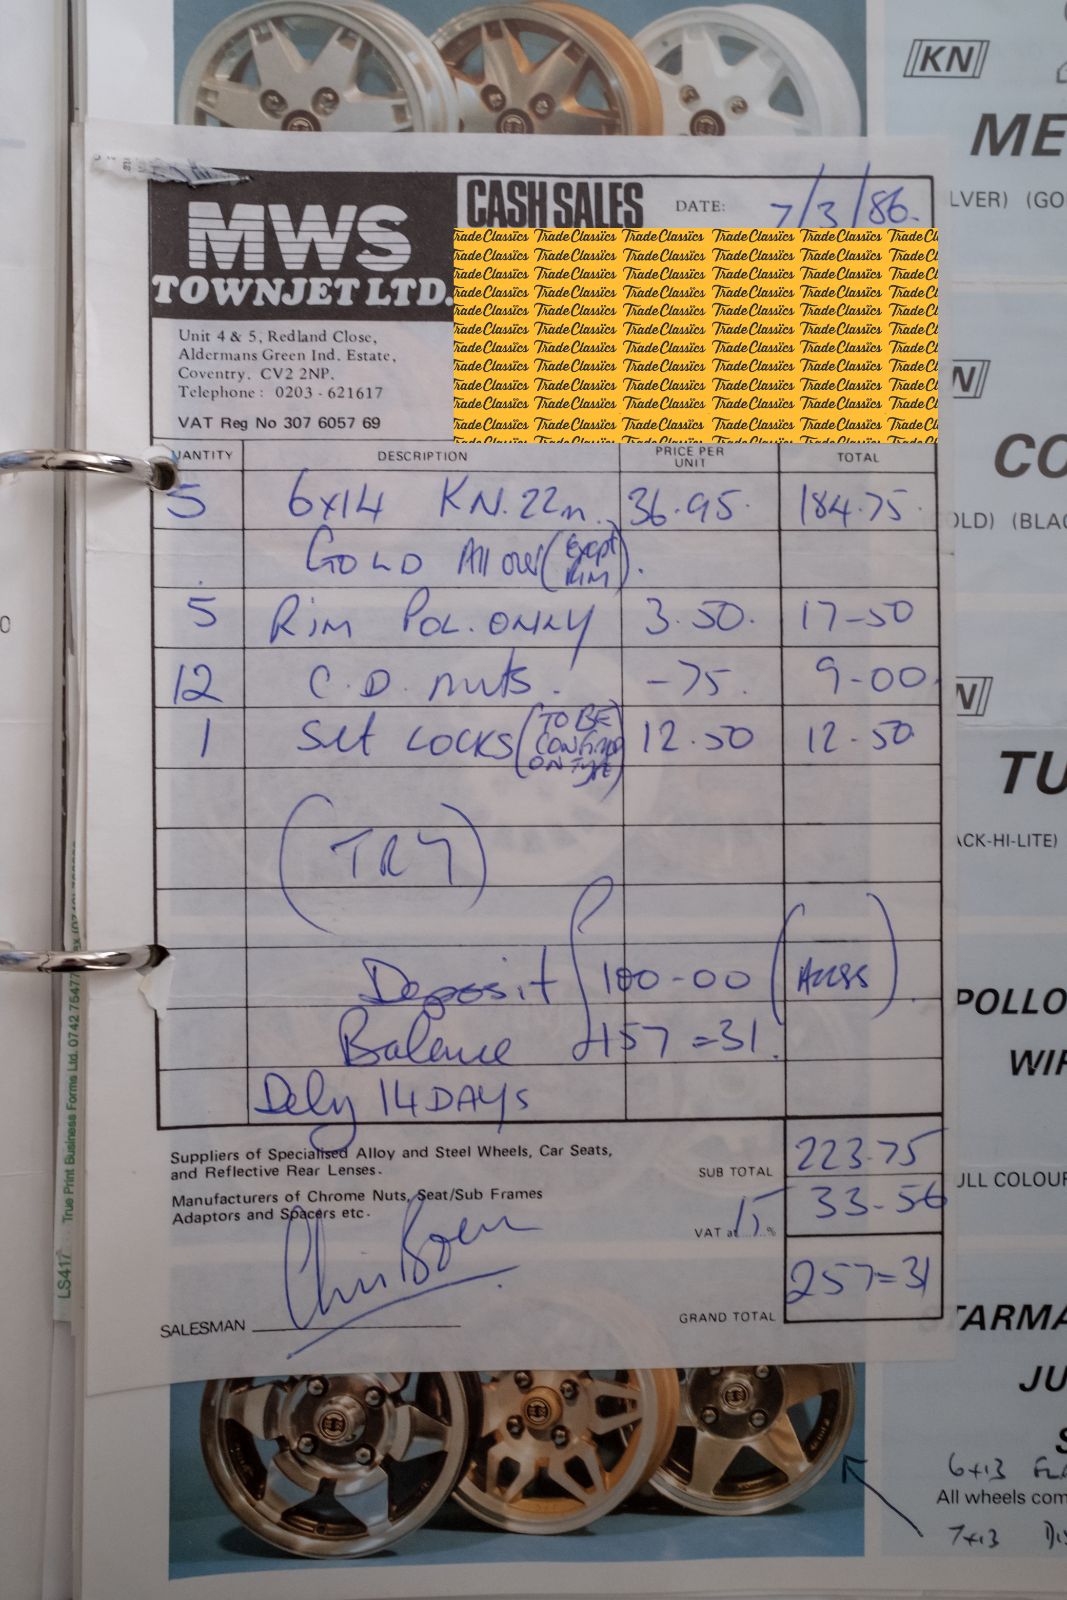 KN
ME
LVER) (GO
MWS
TOWNJET LTD.
CASH SALES DATE: 7/3/86.
Trade Classics
Unit 4 & 5, Redland Close,
Aldermans Green Ind. Estate,
Coventry. CV2 2NP.
Telephone: 0203 - 621617
VAT Reg No 307 6057 69
UANTITY DESCRIPTION PRICE PER UNIT TOTAL
5 6x14 KN. 22m. 36.95. 184.75.
GOLD All over (except Rim).
5 Rim POL. ONLY 3.50. 17-50
12 C.D. nuts. -75. 9-00
1 Set LOCKS (TO BE CONFIRMED ON TYPE) 12.50 12-50
(TR7)
Deposit 100-00 (Access).
Balance £157=31.
Dely 14 DAYS
Suppliers of Specialised Alloy and Steel Wheels, Car Seats,
and Reflective Rear Lenses.
Manufacturers of Chrome Nuts, Seat/Sub Frames
Adaptors and Spacers etc.
SUB TOTAL 223.75
VAT at 15 % 33-56
GRAND TOTAL 257=31
SALESMAN
LS417 True Print Business Forms Ltd. 0742 7547
N
CO
OLD) (BLAC
N
TU
ACK-HI-LITE)
POLLO
WIR
ULL COLOUR
TARMA
JU
S
6x13 FL
All wheels com
7x13